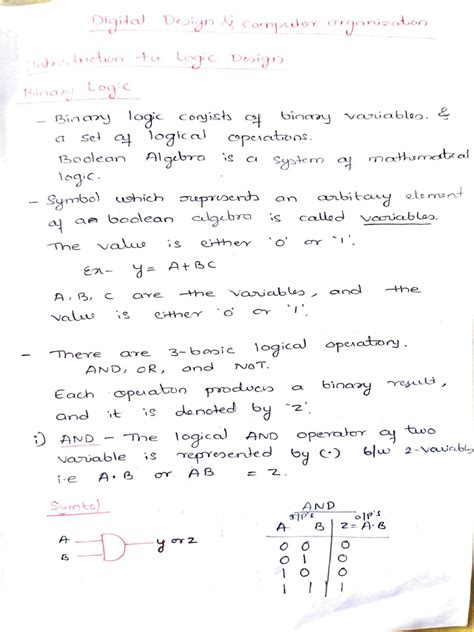 Digital Design & Computer organization
Introduction to Logic Design
Binary Logic
- Binary logic consists of binary variables. &
a set of logical operations.
Boolean Algebra is a system of mathematical
logic.
- Symbol which represents an arbitary element
of a boolean algebra is called variables.
The value is either '0' or '1'.
Ex- y = A+BC
A, B, C are the variables, and the
value is either '0' or '1'.
- There are 3-basic logical operatiory.
AND, OR, and NOT.
Each operation produces a binary result,
and it is denoted by 'z'.
i) AND - The logical AND operator of two
variable is represented by (·) b/w 2-variables
i.e A·B or AB = Z.
Symbol
A
B
y or z
AND
I/p's O/p's
A B Z = A·B
0 0 0
0 1 0
1 0 0
1 1 1